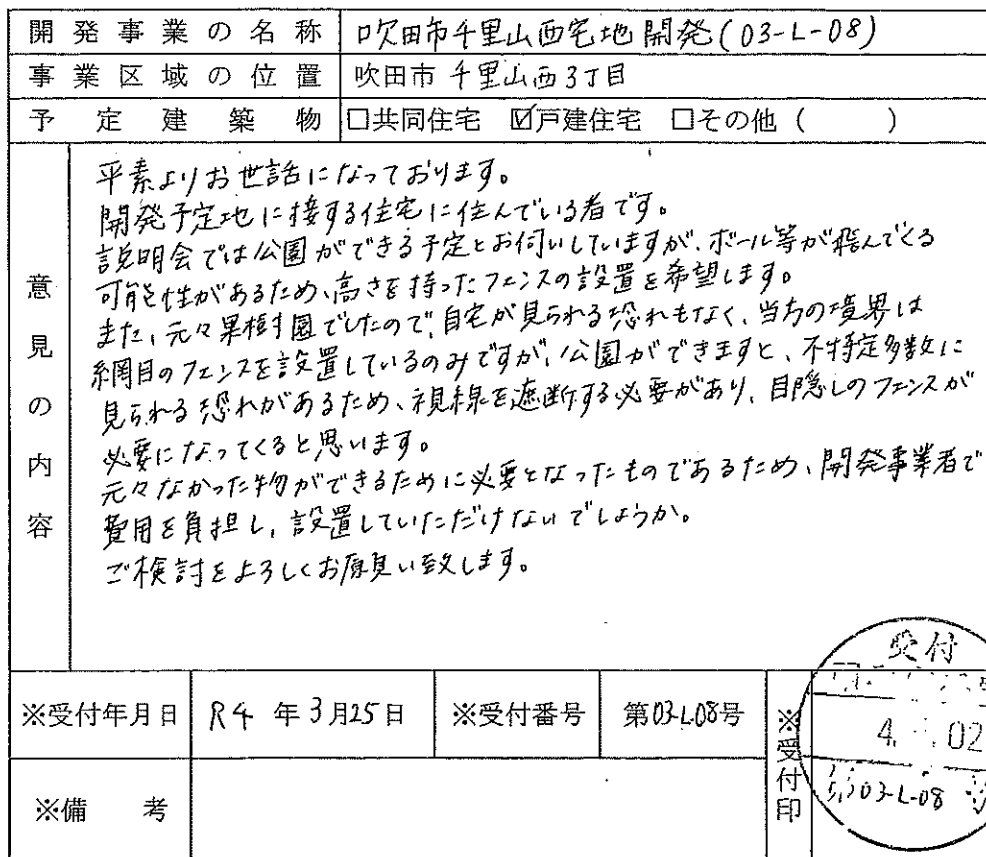 開発事業の名称 吹田市千里山西宅地開発(03-L-08)
事業区域の位置 吹田市千里山西3丁目
予定建築物 □共同住宅 ☑戸建住宅 □その他（ ）
意見の内容
平素よりお世話になっております。
開発予定地に接する住宅に住んでいる者です。
説明会では公園ができる予定とお伺いしていますが、ボール等が飛んでくる
可能性があるため、高さを持ったフェンスの設置を希望します。
また、元々果樹園でしたので、自宅が見られる恐れもなく、当方の境界は
網目のフェンスを設置しているのみですが、公園ができますと、不特定多数に
見られる恐れがあるため、視線を遮断する必要があり、目隠しのフェンスが
必要になってくると思います。
元々なかった物ができるために必要となったものであるため、開発事業者で
費用を負担し、設置していただけないでしょうか。
ご検討をよろしくお願い致します。
※受付年月日 R4 年 3月25日 ※受付番号 第03-L08号 ※受付印
受付
4. 02
03-L-08
※備考